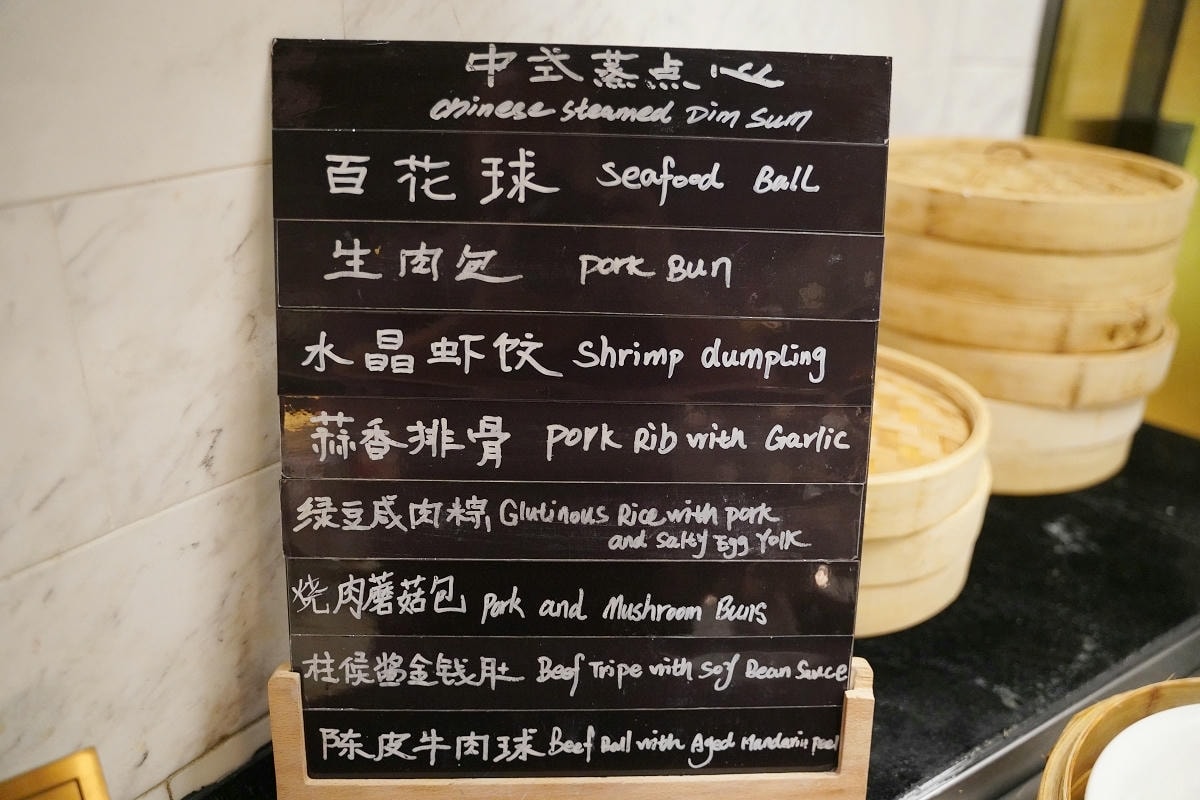 中式蒸点心
Chinese Steamed Dim Sum
百花球 Seafood Ball
生肉包 Pork Bun
水晶虾饺 Shrimp dumpling
蒜香排骨 Pork Rib with Garlic
绿豆咸肉粽 Glutinous Rice with pork
and Salty Egg Yolk
烧肉蘑菇包 Pork and Mushroom Buns
柱候酱金钱肚 Beef Tripe with Soy Bean Sauce
陈皮牛肉球 Beef Ball with Aged Mandarin peel